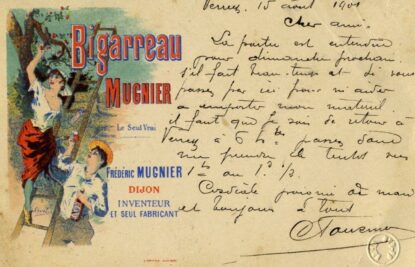 Bigarreau
MUGNIER
Le Seul Vrai
FRÉDÉRIC MUGNIER
DIJON
INVENTEUR
ET SEUL FABRICANT
15 août 1901
Cher ami,
La partie est entendue
pour dimanche prochain
s'il fait beau temps et si vous
passez par ici pour m'aider
a emporter mon materiel
il faut que je sois de retour à
à 6 h passez donc
me prendre
Cordiale poignée de main
et bonjour à tous